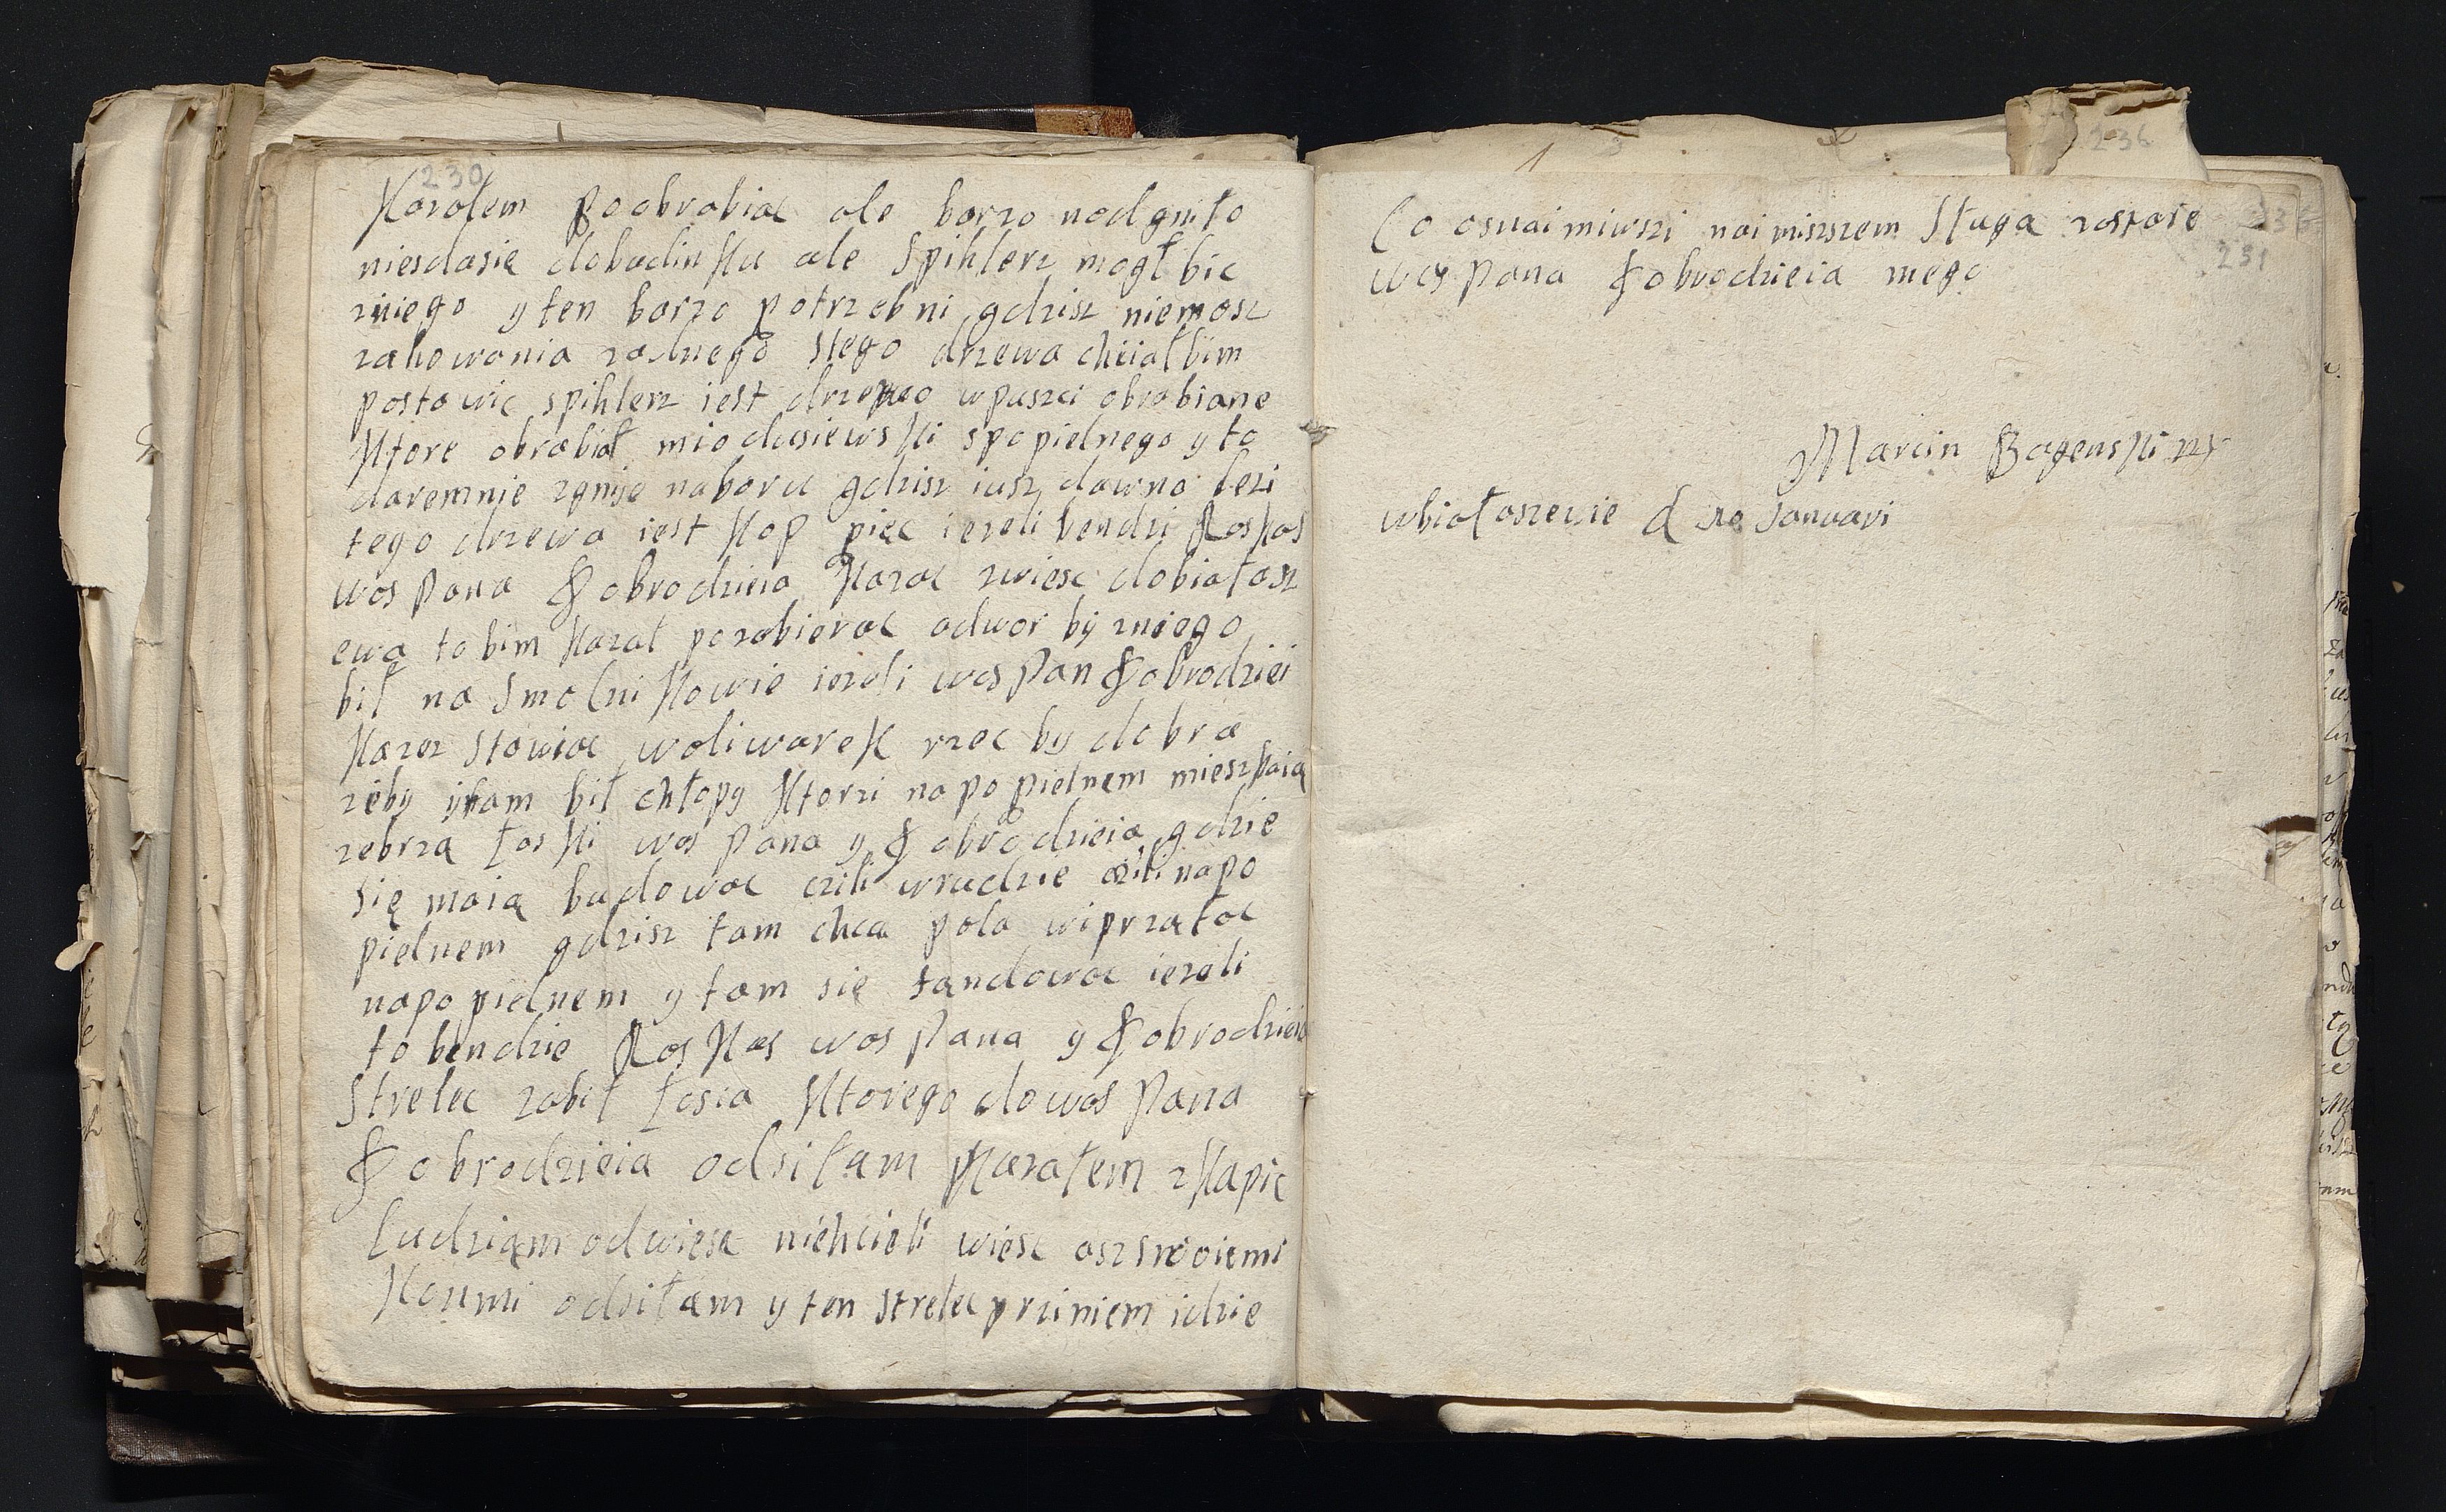 230
Kazałem poobrabiac ale barzo nadgniło
niesdasię dobudinku ale spihlerz mogł bic
zniego y ten barzo potrzebni gdzisz niemasz
zahowania zadnego stego drzewa chciałbim
postawic spihlerz iest drzewo wpuszci obrabiane
Ktore obrabiał miodusiewski spopielnego y to
daremnie zgnije naboru gdzisz iusz dawno lezi
tego drzewa iest Kop pięc iezeli bendzi Roskas
was pana Dobrodzieia Kazac zwiesc dobiałasz
ewa to bim Kazał pozabierac adwor bÿ zniego
bił na Smolnikowie iezeli was Pan Dobrodziei
Kazez stawiac woliwarek rzec by dobra
zeby tam bił chłopy Ktorzi na po pielnem mieszkaią
zebrzą łaski was Pana y Dobrodzieia gdzie
się maią budowac czili wrudzie czili napo
pielnem gdzisz tam chcą pola wiprzątac
napopielnem y tam się sandowac iezeli
to bendzie Roskas was Pana y Dobrodzieia
Strelec zabił łosia Ktorego dowas Pana
Dobrodzieia odsiłam Kazałem zkapic
ludziąm odwiesc niehcieli wiesc asz swoiemi
Konmi odsiłam y ten strelec przi niem idzie
236
231
Co osnaimiwszi nainiszszem Sługą zostaie
was pana Dobrodzieia mego
Marcin Bagenski
wbiałaszewie d 20 Januari